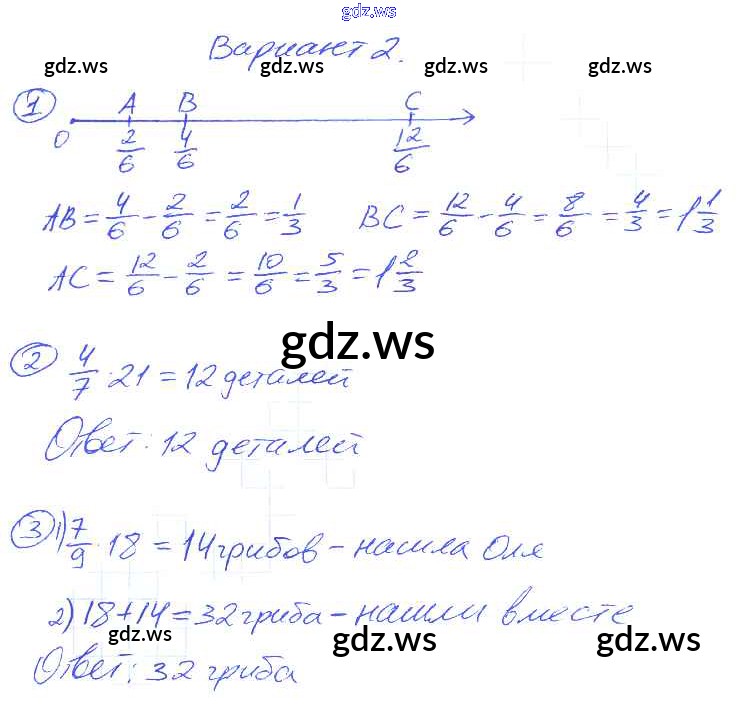 gdz.ws
Вариант 2.
gdz.ws gdz.ws gdz.ws gdz.ws
1 A B C
0 2/6 4/6 12/6
AB = 4/6 - 2/6 = 2/6 = 1/3 BC = 12/6 - 4/6 = 8/6 = 4/3 = 1 1/3
AC = 12/6 - 2/6 = 10/6 = 5/3 = 1 2/3
gdz.ws
2 4/7 · 21 = 12 деталей
Ответ: 12 деталей
3 1) 7/9 · 18 = 14 грибов - нашла Оля
2) 18+14=32 гриба - нашли вместе
gdz.ws gdz.ws gdz.ws
Ответ: 32 гриба